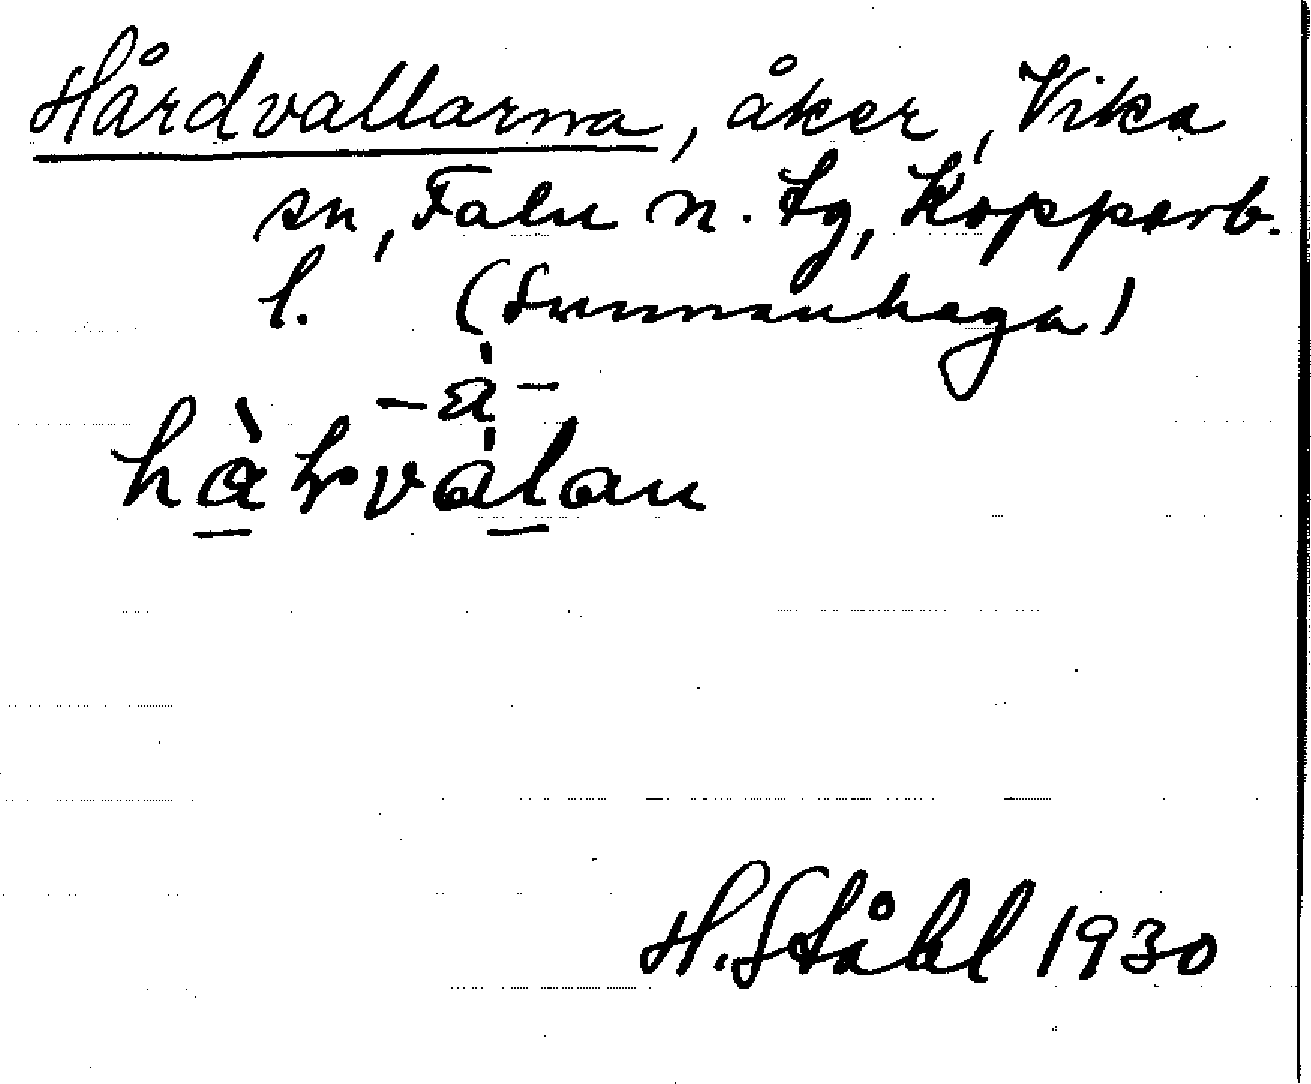 Hårdvallarna, åker, Vika
sn, Falu n. tg, Kopparb.
l. (Sunnanhaga)
-à-
hàrvàlan
H. Ståhl 1930